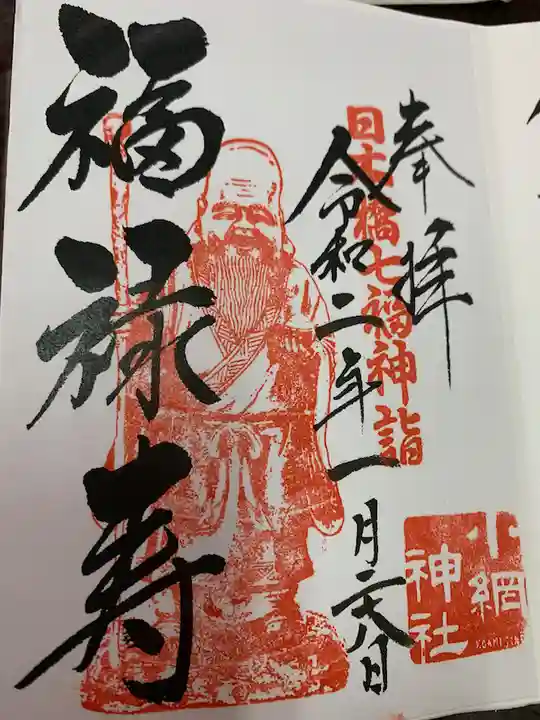 奉拝
日本橋七福神詣
令和二年一月二六日
福禄寿
小網
神社
KOAMI JINJA